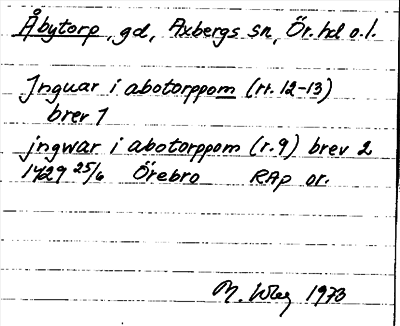 Åbytorp, gd, Axbergs sn, Ör. hd o. l.
Jnguar i abotorppom (rt. 12-13)
brev 1
jngwar i abotorppom (r. 9) brev 2
1429 25/6 Örebro RAp or.
M. 1973